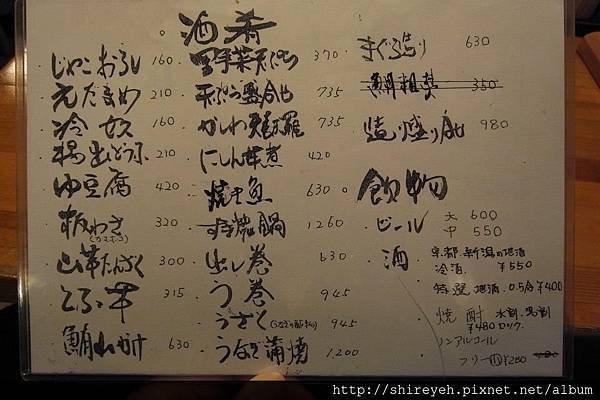 酒肴
じゃこおろし 160
えだまめ 210
冷奴 160
揚出どうふ 210
ゆ豆腐 420
板わさ 320
(カマボコ)
山芋たんざく 300
とろろ芋 315
鮪山かけ 630
野菜天ぷら 370
天ぷら盛合せ 735
かしわ天麩羅 735
にしん甘煮 420
焼き魚 630
すき焼鍋 1260
出し巻 630
う巻 945
うざく 945
うなぎ蒲焼 1,200
まぐろ造り 630
350
造り盛り合せ 980
飲物
ビール 大 600
中 550
酒 京都・新潟の地酒
冷酒 ¥550
特選 地酒 0.5合 ¥400
焼酎 水割・湯割
¥480 ロック
ノンアルコール
フリー ¥280
http://shireyeh.pixnet.net/album